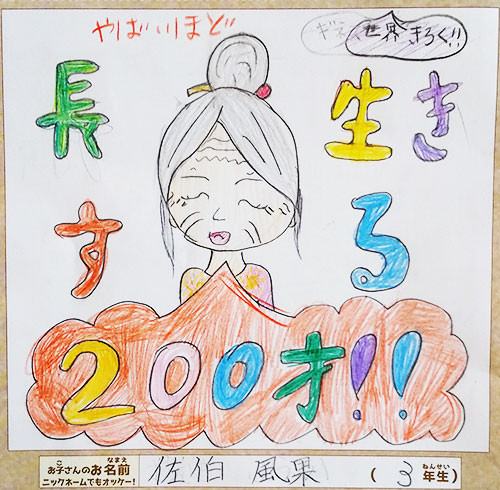 やばいほど
ギネ
世界きろく!!
長生き
する
200才!!
こ なまえ
お子さんのお名前
ニックネームでもオッケー!
佐伯 風果
ねんせい
(3年生)